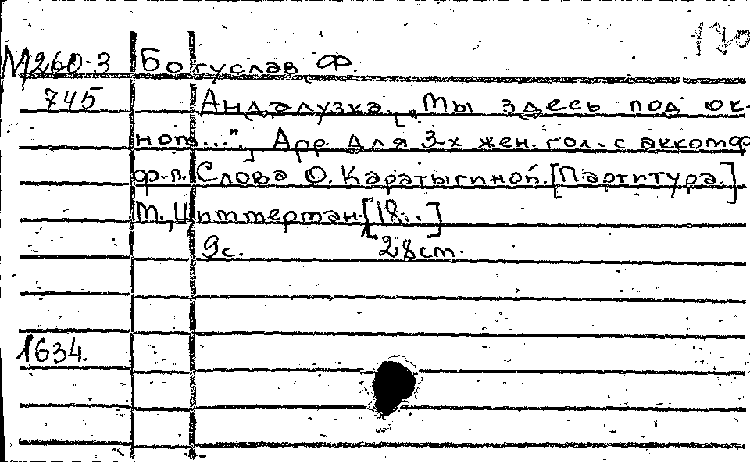 130
М260-3 Богуслав, Ф.
745 Андалузка. „Мы здесь под ок-
ном...", Арр. для 3-х жен. гол. с аккомп
ф-п. Слова О. Каратыгиной. [Партитура.]
М., Циммерман. [18..]
9с. 28см.
1634.